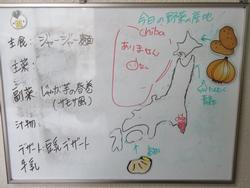 今日の野菜の産地
主食: ジャージャー麺
chiba
ありません
主菜:
副菜 じゃが芋の春巻
(サモサ風)
汁物:
デザート: 豆乳デザート
牛乳